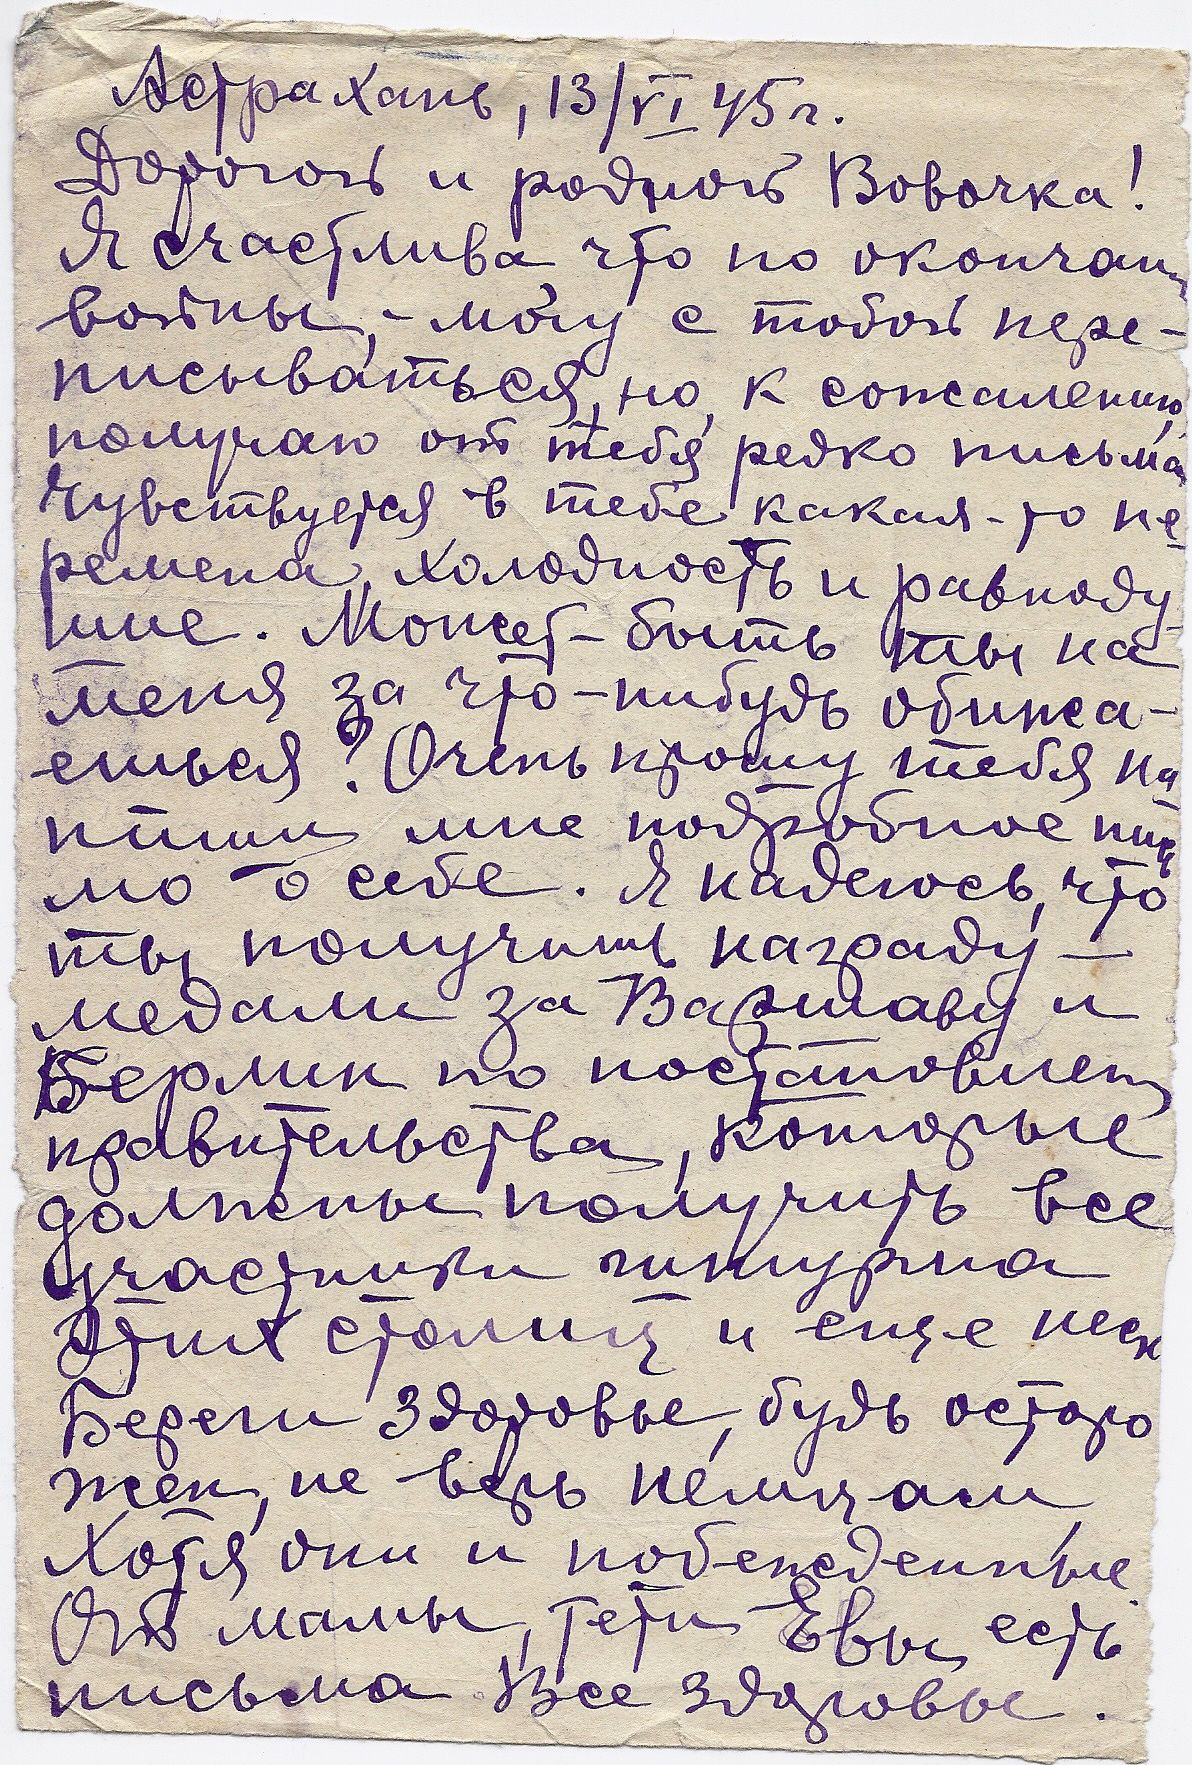 Астрахань, 13/VI 45 г.
Дорогой и родной Вовочка!
Я счастлива что по окончан
войны, – могу с тобой пере-
писываться, но, к сожалению,
получаю от тебя редко письма
Чувствуется в тебе какая-то пе
ремена, холодность и равноду
шие. Может-быть ты на
меня за что-нибудь обижа-
ешься? Очень прошу тебя на
пиши мне подробное пись
мо о себе. Я надеюсь, что
ты получишь награду –
медали за Варшаву и
Берлин по постановлен
правительства, которые
должны получить все
участники штурма
этих столиц и еще
Береги здоровье, будь осторо
жен, не верь немцам,
Хотя они и побежденные
От мамы, тети Евы есть
письма Все здоровы.